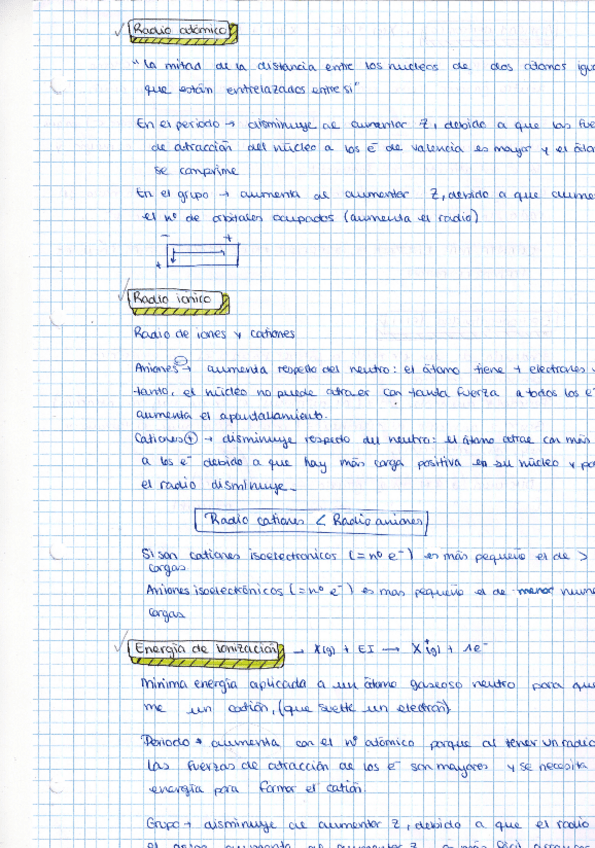 Radio atómico
"La mitad de la distancia entre los nucleos de dos átomos igua
que están entrelazados entre si"
En el periodo → disminuye al aumentar Z, debido a que las fue
de atracción del núcleo a los e⁻ de valencia es mayor y el áto
se comprime
En el grupo → aumenta al aumentar Z, debido a que aume
el nº de orbitales ocupados (aumenta el radio)
- +
+
Radio ionico
Radio de iones y cationes
Aniones ⊖ → aumenta respecto del neutro: el átomo tiene + electrones y
tanto, el núcleo no puede atraer con tanta fuerza a todos los e⁻
aumenta el apantallamiento.
Cationes ⊕ → disminuye respecto del neutro: el átomo atrae con más
a los e⁻ debido a que hay más carga positiva en su núcleo y po
el radio disminuye.
Radio cationes < Radio aniones
Si son cationes isoelectronicos (= nº e⁻) es más pequeño el de >
cargas
Aniones isoelectrónicos (= nº e⁻) es mas pequeño el de menor nume
cargas
Energía de ionización → X(g) + EI → X⁺(g) + 1e⁻
Mínima energía aplicada a un átomo gaseoso neutro para que
me un catión, (que suelte un electrón)
Periodo → aumenta con el nº atómico porque al tener un radio
las fuerzas de atracción de los e⁻ son mayores y se necesita
energía para formar el catión.
Grupo → disminuye al aumentar Z, debido a que el radio